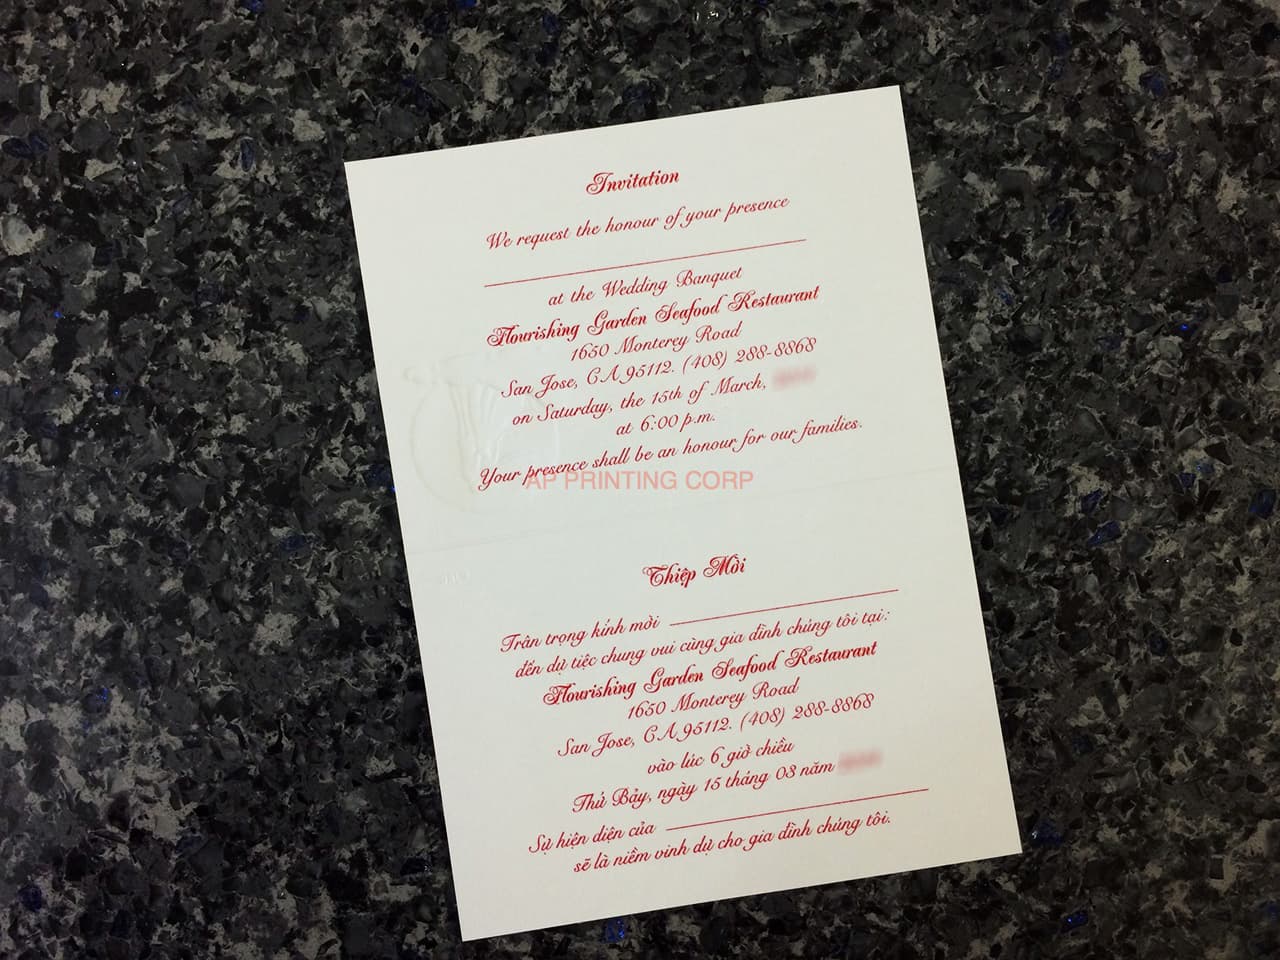 Invitation
We request the honour of your presence
at the Wedding Banquet
Flourishing Garden Seafood Restaurant
1650 Monterey Road
San Jose, CA 95112. (408) 288-8868
on Saturday, the 15th of March,
at 6:00 p.m.
Your presence shall be an honour for our families.
AP PRINTING CORP
Thiệp Mời
Trân trọng kính mời
đến dự tiệc chung vui cùng gia đình chúng tôi tại:
Flourishing Garden Seafood Restaurant
1650 Monterey Road
San Jose, CA 95112. (408) 288-8868
vào lúc 6 giờ chiều
Thứ Bảy, ngày 15 tháng 03 năm
Sự hiện diện của
sẽ là niềm vinh dự cho gia đình chúng tôi.